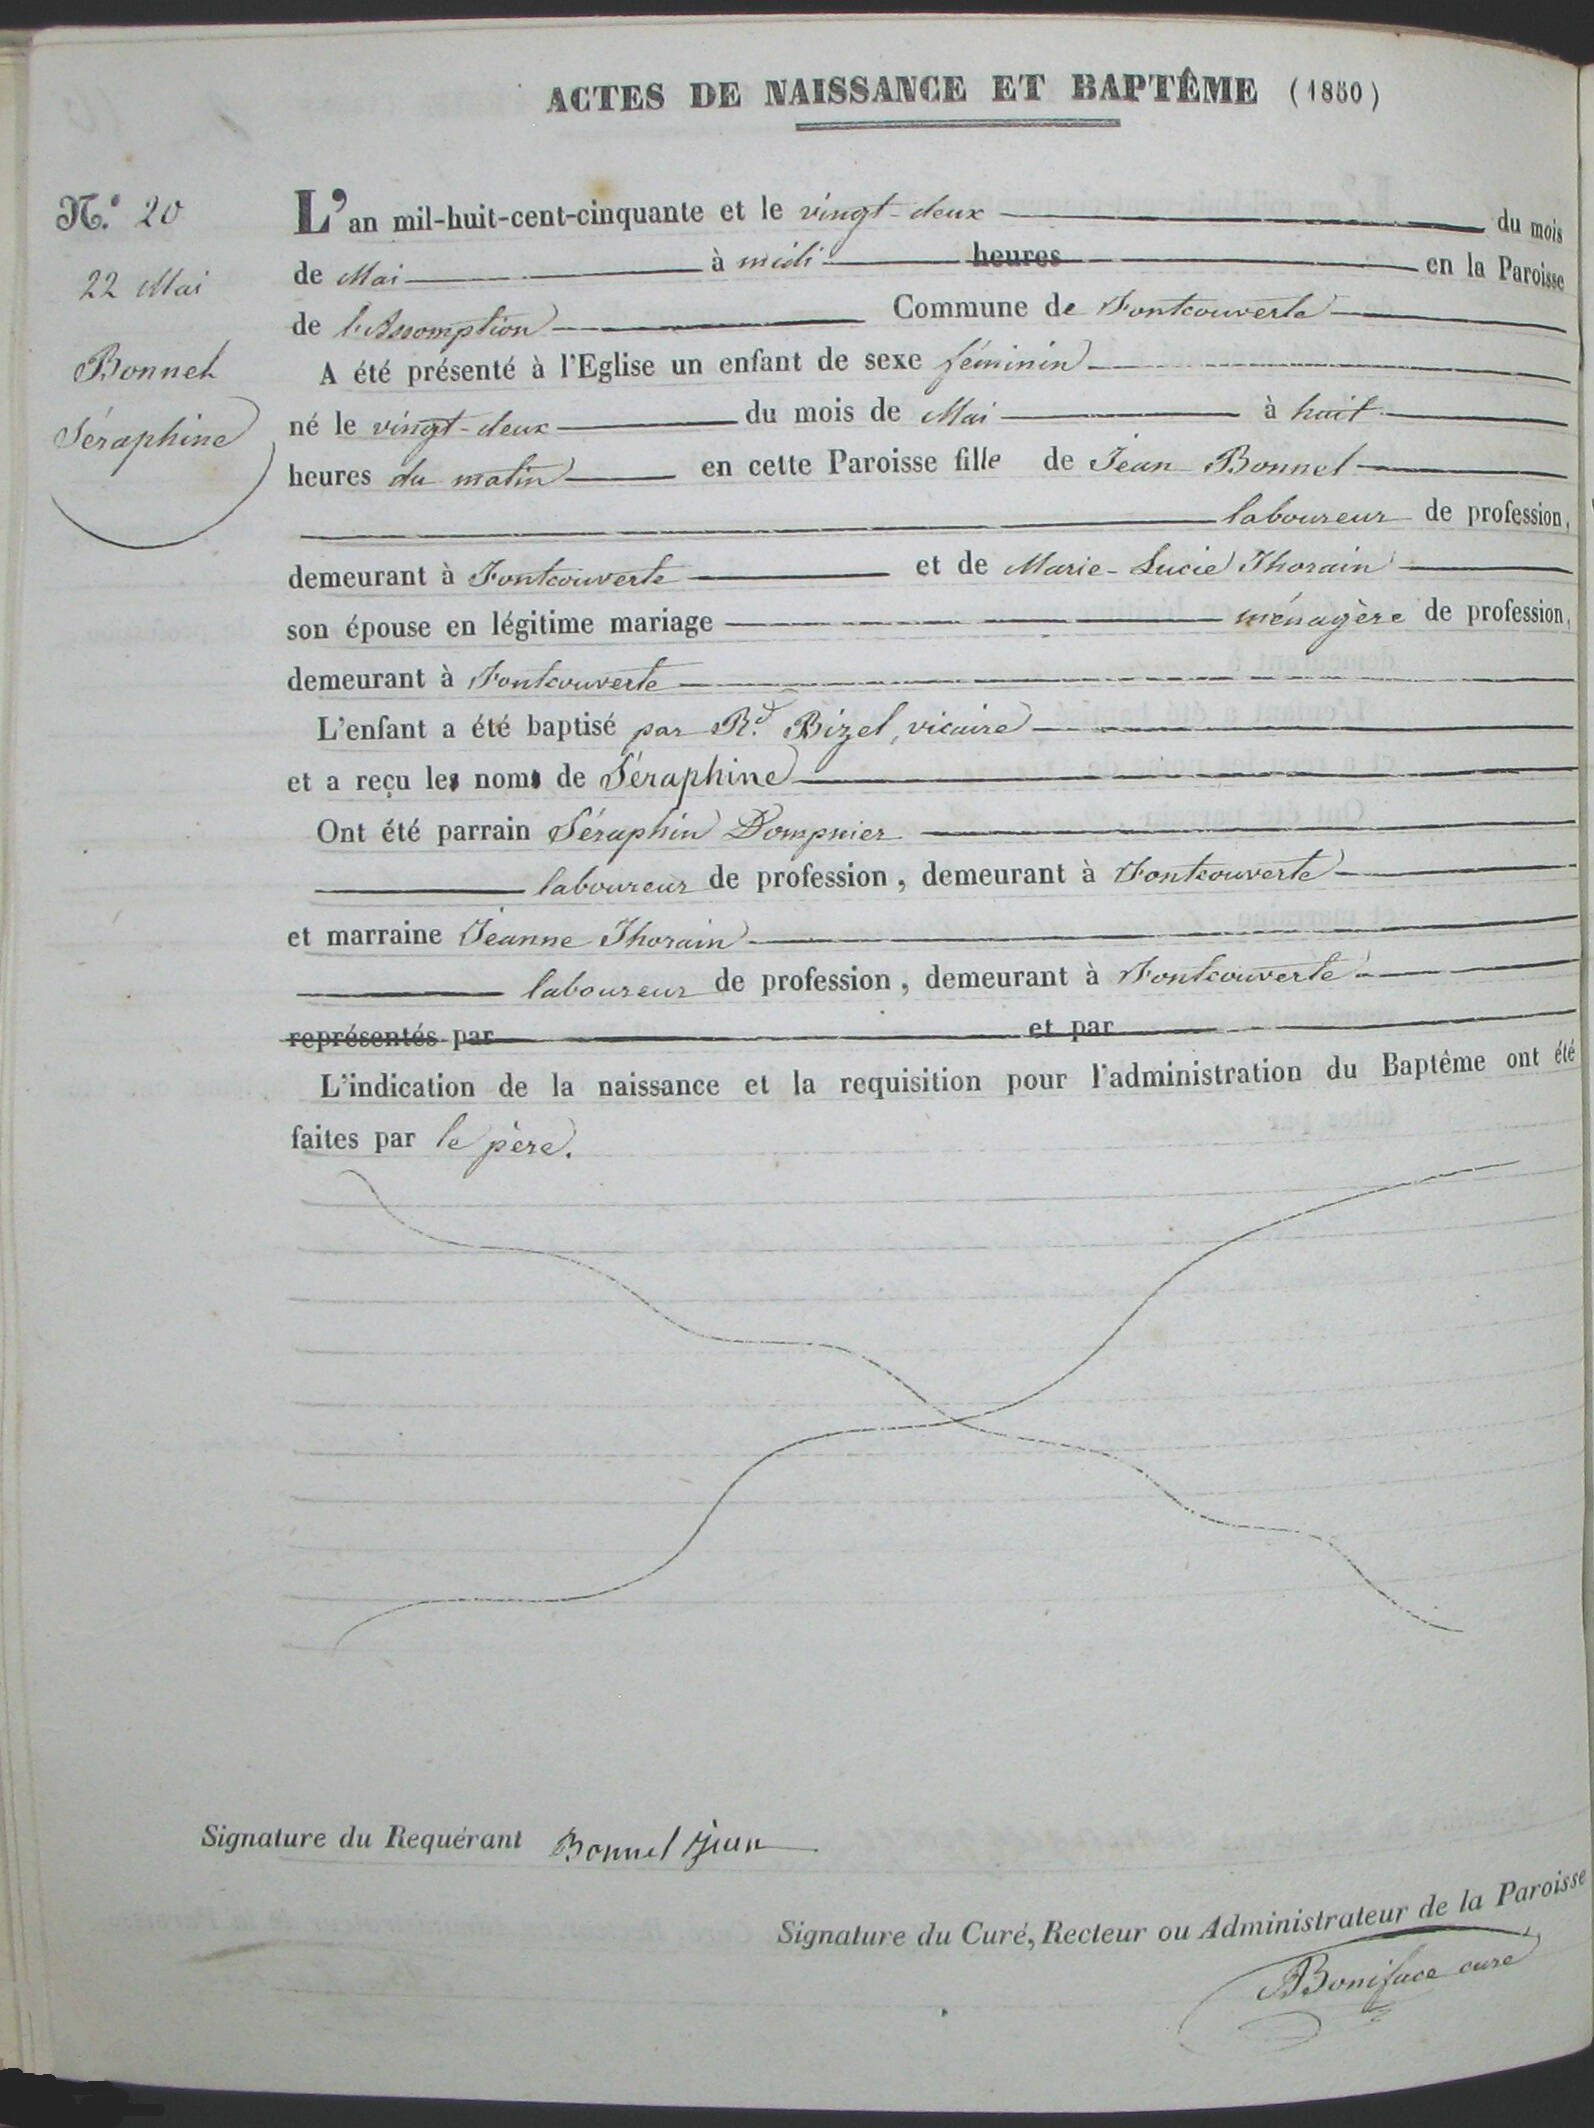 ACTES DE NAISSANCE ET BAPTÊME (1850)
N.º 20
22 Mai
Bonnet
Séraphine
L'an mil-huit-cent-cinquante et le vingt-deux du mois
de Mai à midi heures en la Paroisse
de l'Assomption Commune de Fontcouverte
A été présenté à l'Eglise un enfant de sexe féminin
né le vingt-deux du mois de Mai à huit
heures du matin en cette Paroisse fille de Jean Bonnet
laboureur de profession,
demeurant à Fontcouverte et de Marie-Lucie Thorain
son épouse en légitime mariage ménagère de profession,
demeurant à Fontcouverte
L'enfant a été baptisé par Rd. Bizel, vicaire
et a reçu les noms de Séraphine
Ont été parrain Séraphin Dompnier
laboureur de profession, demeurant à Fontcouverte
et marraine Jeanne Thorain
laboureur de profession, demeurant à Fontcouverte
représentés par et par
L'indication de la naissance et la requisition pour l'administration du Baptême ont été
faites par le père.
Signature du Requérant Bonnet Jean
Signature du Curé, Recteur ou Administrateur de la Paroisse
Boniface curé